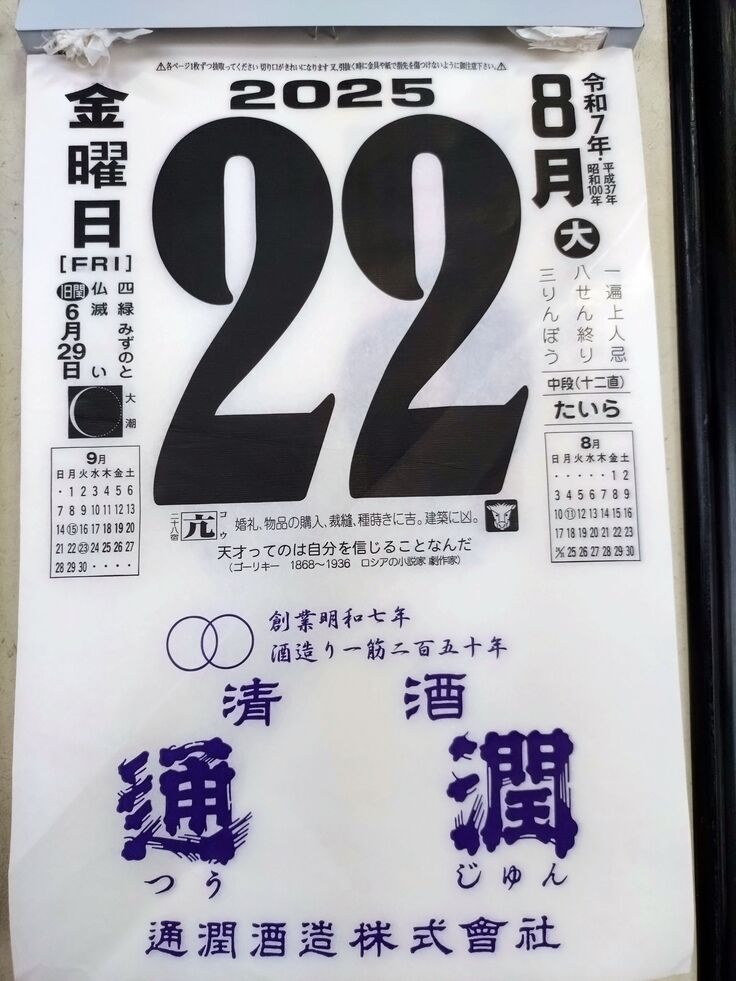 ⚠各ページ1枚ずつ抜取ってください 切り口がきれいになります 又、引抜く時に金具や紙で指先を傷つけないように御注意下さい。⚠
2025
8月
令和7年・平成37年 昭和100年
大
一遍上人忌
八せん終り
三りんぼう
中段(十二直)
たいら
金曜日
[FRI]
四緑 みずのと い
仏滅
旧閏6月29日
大潮
22
9月
日月火水木金土
・ 1 2 3 4 5 6
7 8 9 10 11 12 13
14 ⑮ 16 17 18 19 20
21 22 ㉓ 24 25 26 27
28 29 30 ・ ・ ・ ・
8月
日月火水木金土
1 2
3 4 5 6 7 8 9
10 ⑪ 12 13 14 15 16
17 18 19 20 21 22 23
24/31 25 26 27 28 29 30
二十八宿 亢 コウ 婚礼、物品の購入、裁縫、種蒔きに吉。建築に凶。
天才ってのは自分を信じることなんだ
(ゴーリキー 1868〜1936 ロシアの小説家 劇作家)
創業明和七年
酒造り一筋二百五十年
清酒
通潤
つうじゅん
通潤酒造株式會社